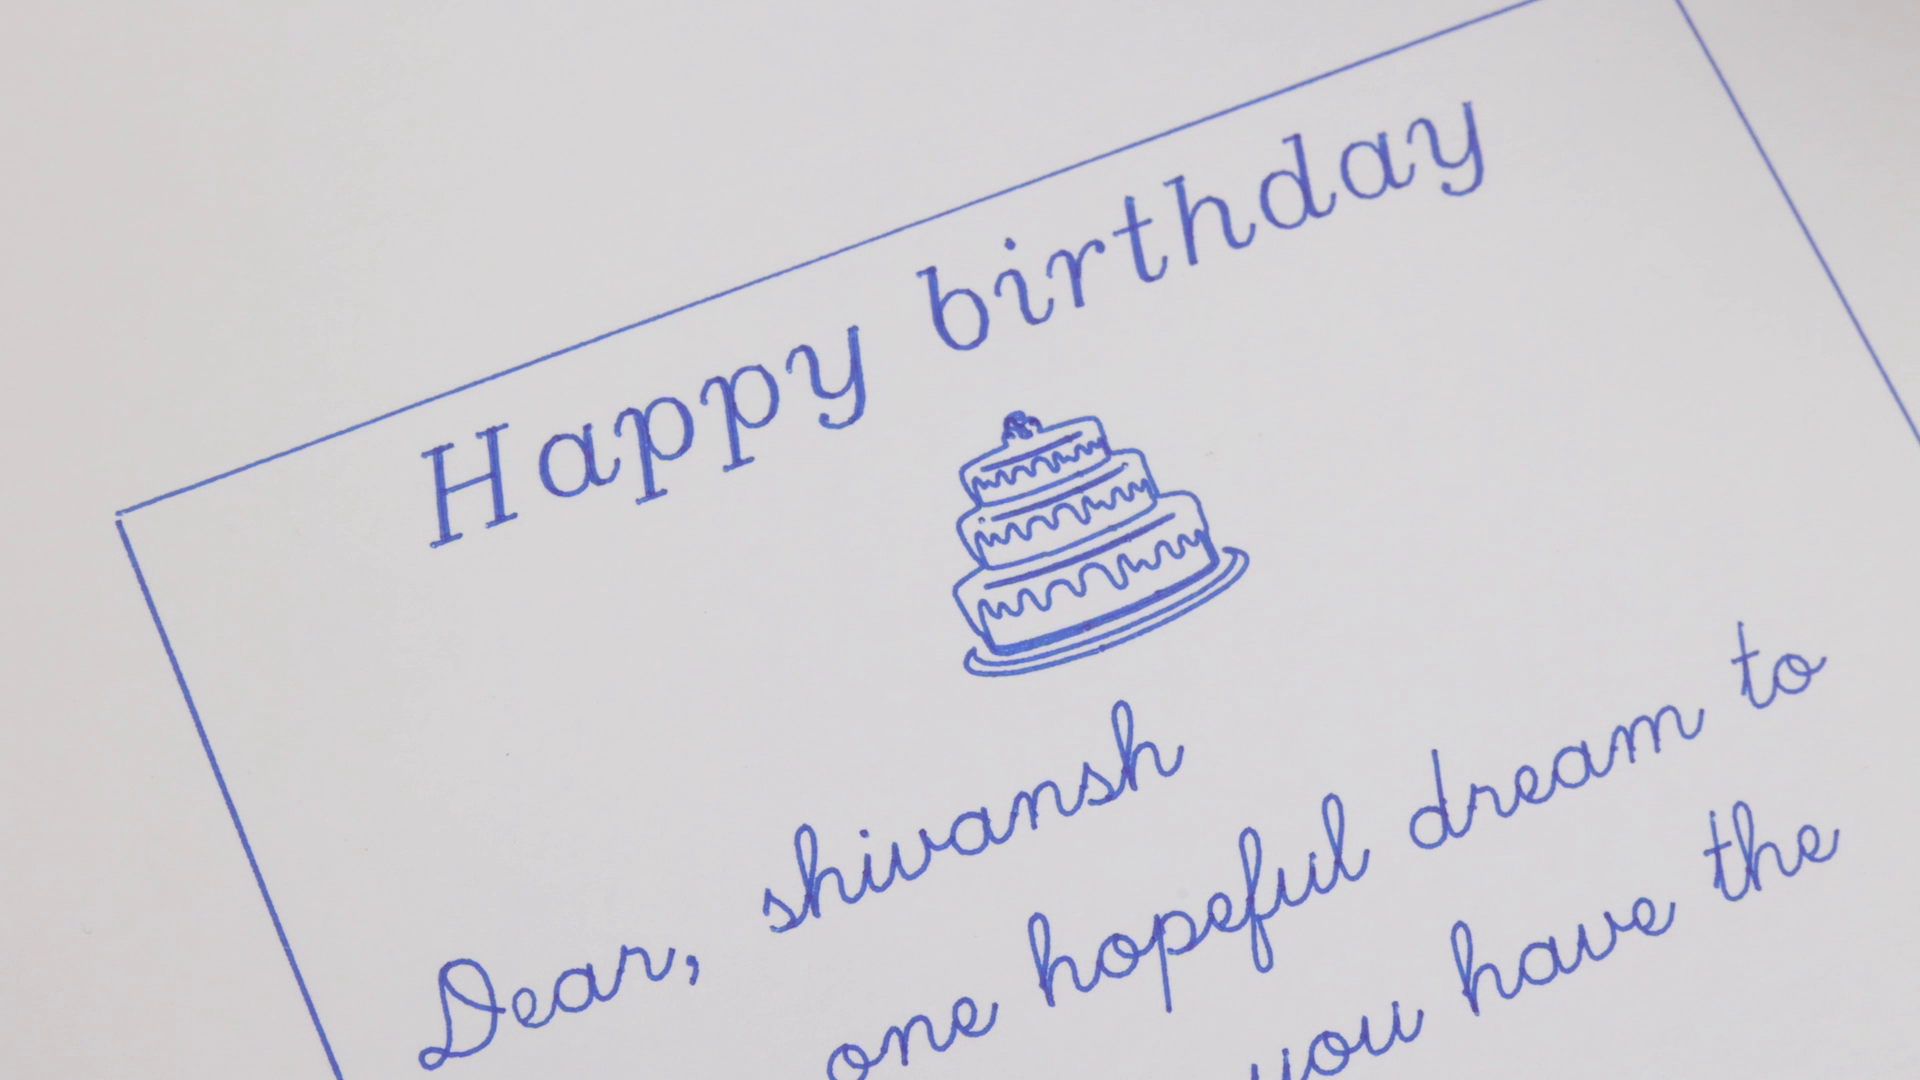 Happy birthday
Dear, shivansh
one hopeful dream to
you have the